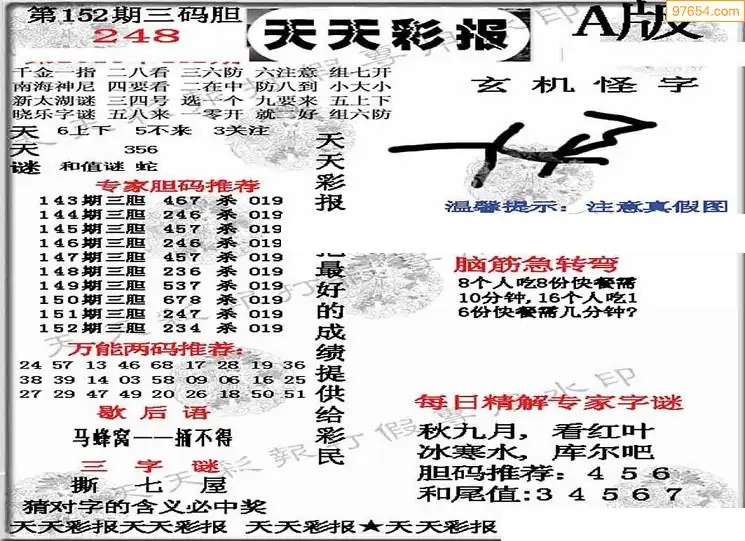 第152期三码胆
248
天天彩报
A版
97654.com
千金一指 二八看 三六防 六注意 组七开
南海神尼 四要看 二在中 防八到 小大小
新太湖谜 三四号 选一个 九要来 五上下
晓乐字谜 五八来 一零开 就二好 组六防
天 6上下 5不来 3关注
天 356
谜 和值谜 蛇
专家胆码推荐
143期三胆 467 杀 019
144期三胆 246 杀 019
145期三胆 457 杀 019
146期三胆 246 杀 019
147期三胆 457 杀 019
148期三胆 236 杀 019
149期三胆 537 杀 019
150期三胆 678 杀 019
151期三胆 247 杀 019
152期三胆 234 杀 019
万能两码推荐:
24 57 13 46 68 17 28 19 36
38 39 14 03 58 09 06 16 25
27 29 47 49 20 26 18 50 51
歇后语
马蜂窝——捅不得
三字谜
撕 七 屋
猜对字的含义必中奖
天天彩报
把最好的成绩提供给彩民
玄机怪字
温馨提示:注意真假图
脑筋急转弯
8个人吃8份快餐需
10分钟,16个人吃1
6份快餐需几分钟?
每日精解专家字谜
秋九月,看红叶
冰寒水,库尔吧
胆码推荐:4 5 6
和尾值:3 4 5 6 7
天天彩报天天彩报 天天彩报★天天彩报